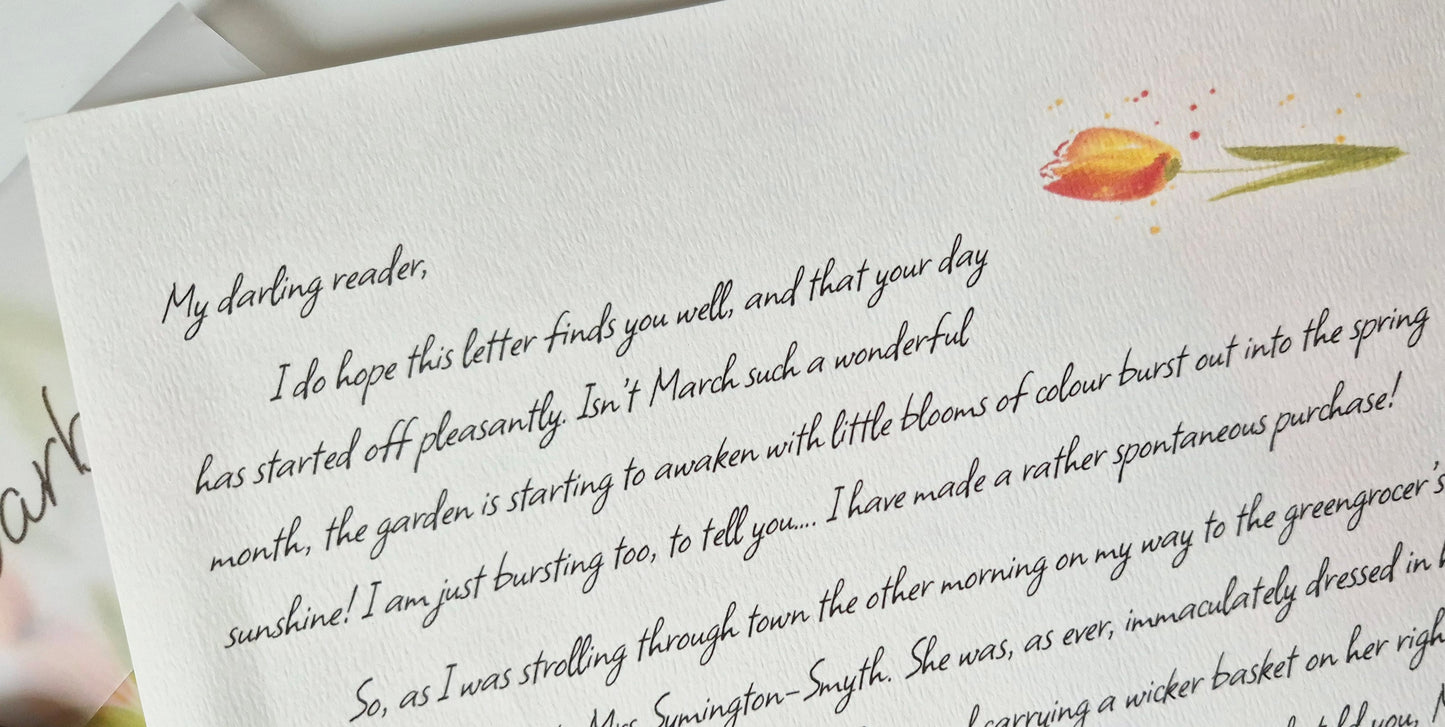 My darling reader,
I do hope this letter finds you well, and that your day
has started off pleasantly. Isn't March such a wonderful
month, the garden is starting to awaken with little blooms of colour burst out into the spring
sunshine! I am just bursting too, to tell you.... I have made a rather spontaneous purchase!
So, as I was strolling through town the other morning on my way to the greengrocer's
Mrs Symington-Smyth. She was, as ever, immaculately dressed in
carrying a wicker basket on her
told you,